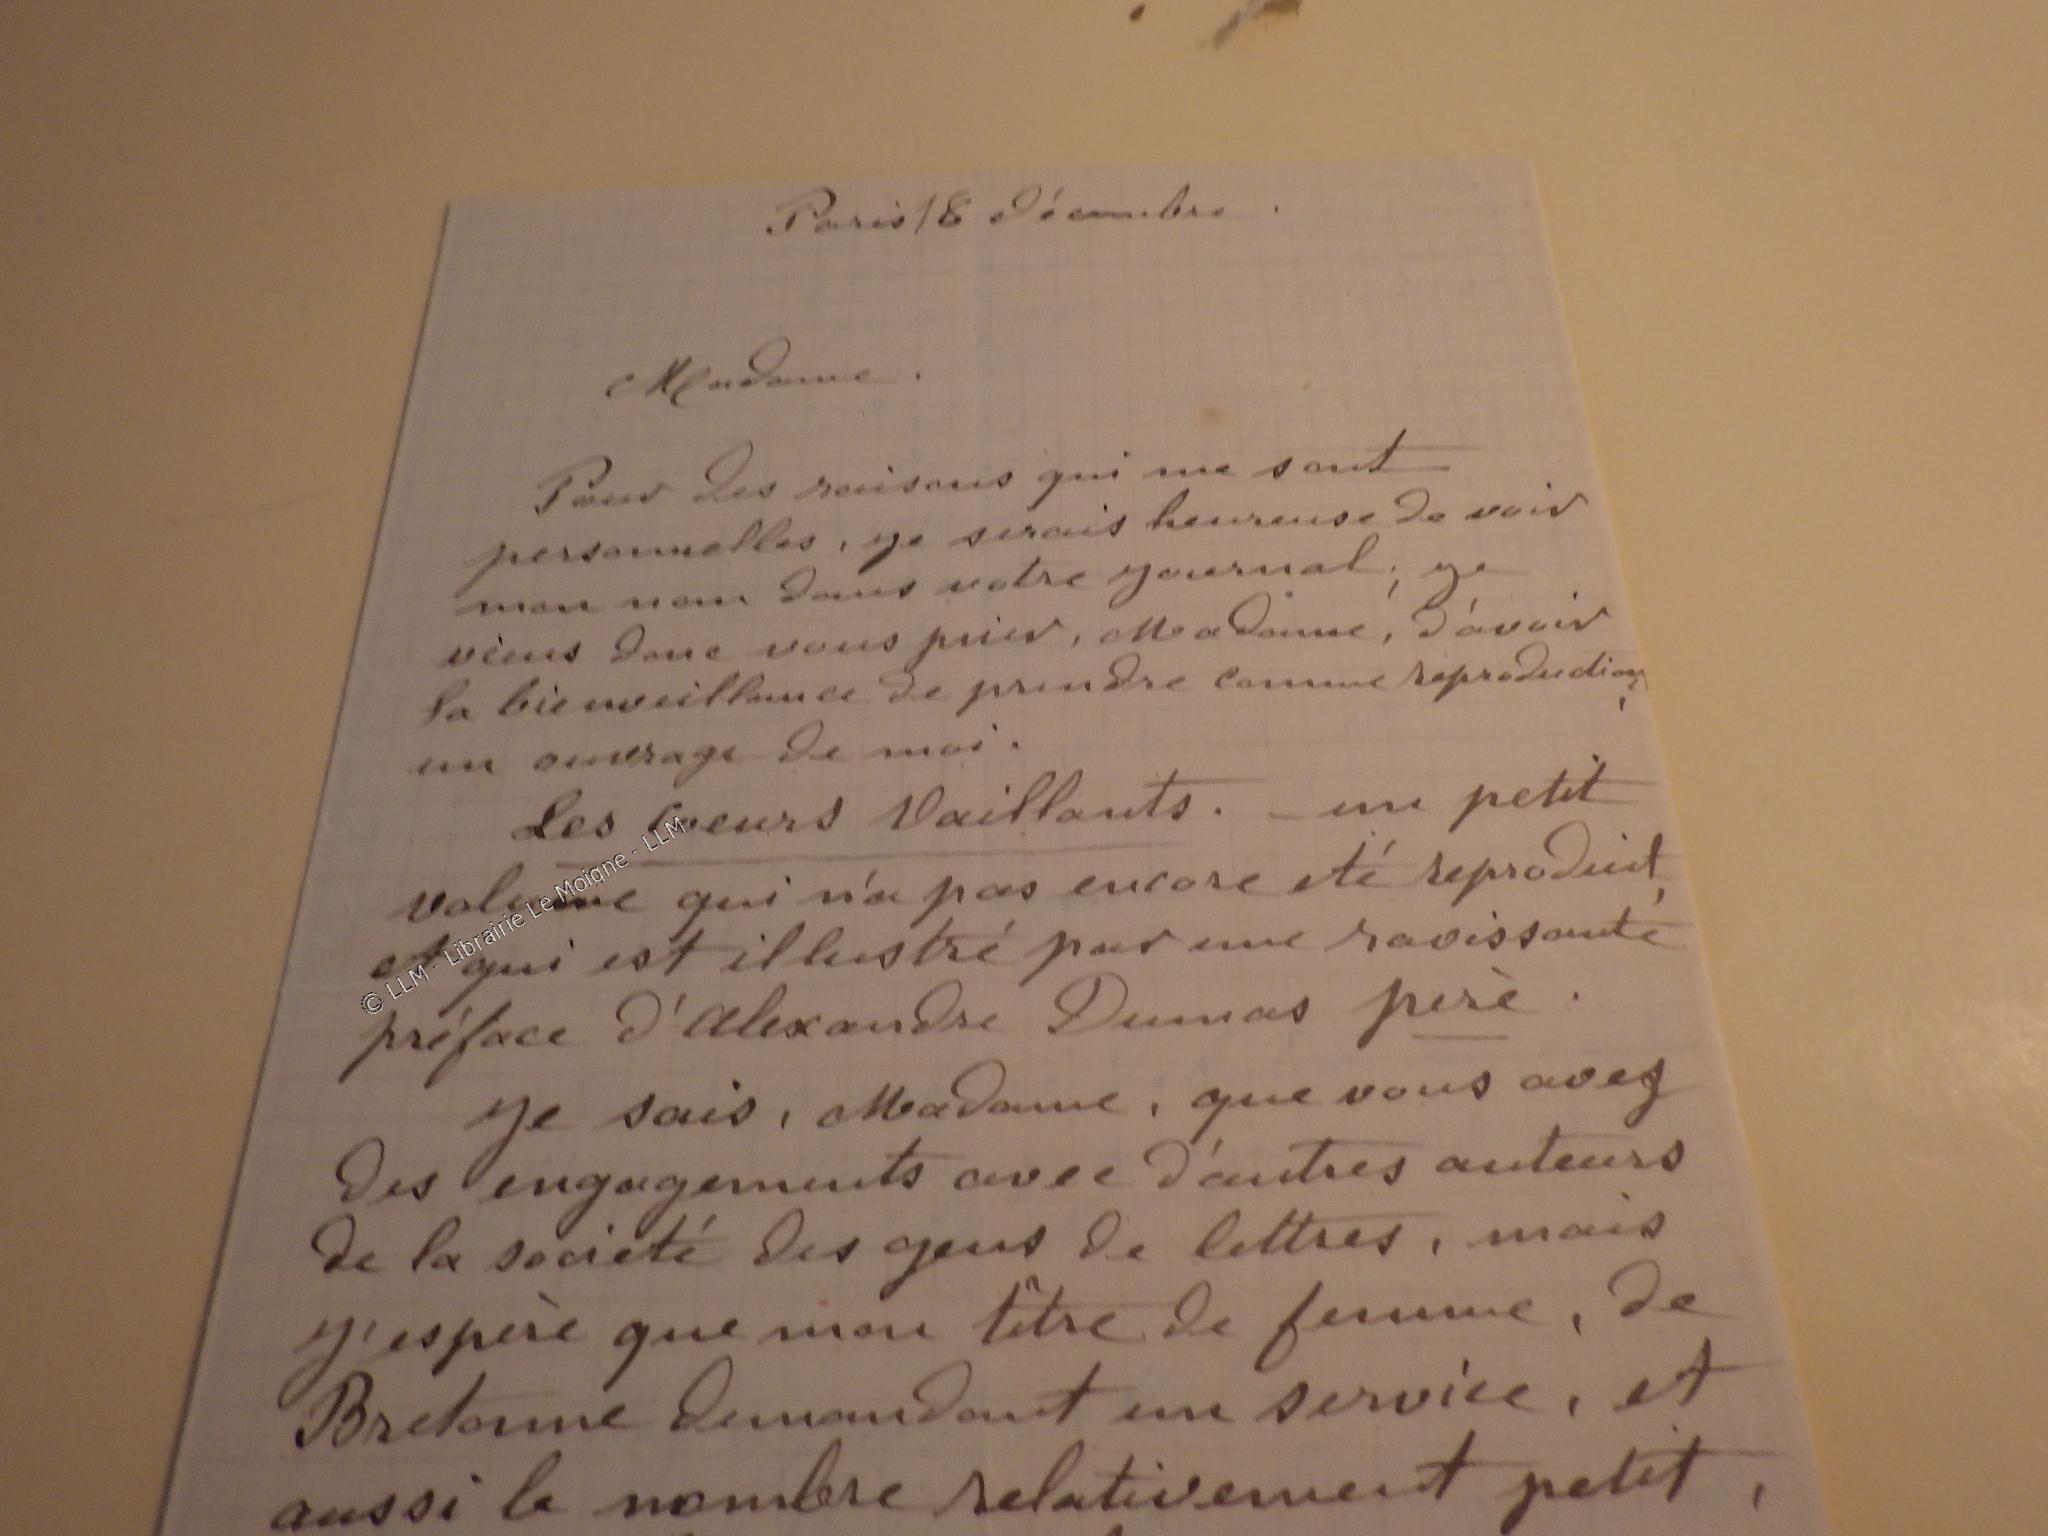 Paris 18 décembre.
Madame.
Pour des raisons qui me sont
personnelles, je serais heureuse de voir
mon nom dans votre journal; je
viens donc vous prier, Madame, d'avoir
la bienveillance de prendre comme reproduction,
un ouvrage de moi.
Les Coeurs Vaillants. - un petit
volume qui n'a pas encore été reproduit,
et qui est illustré par une ravissante
préface d'Alexandre Dumas père.
Je sais, Madame, que vous avez
des engagements avec d'autres auteurs
de la societé des gens de lettres, mais
j'espère que mon tître de femme, de
Bretonne demandant un service, et
aussi le nombre relativement petit,
© LLM - Librairie Le Moigne - LLM